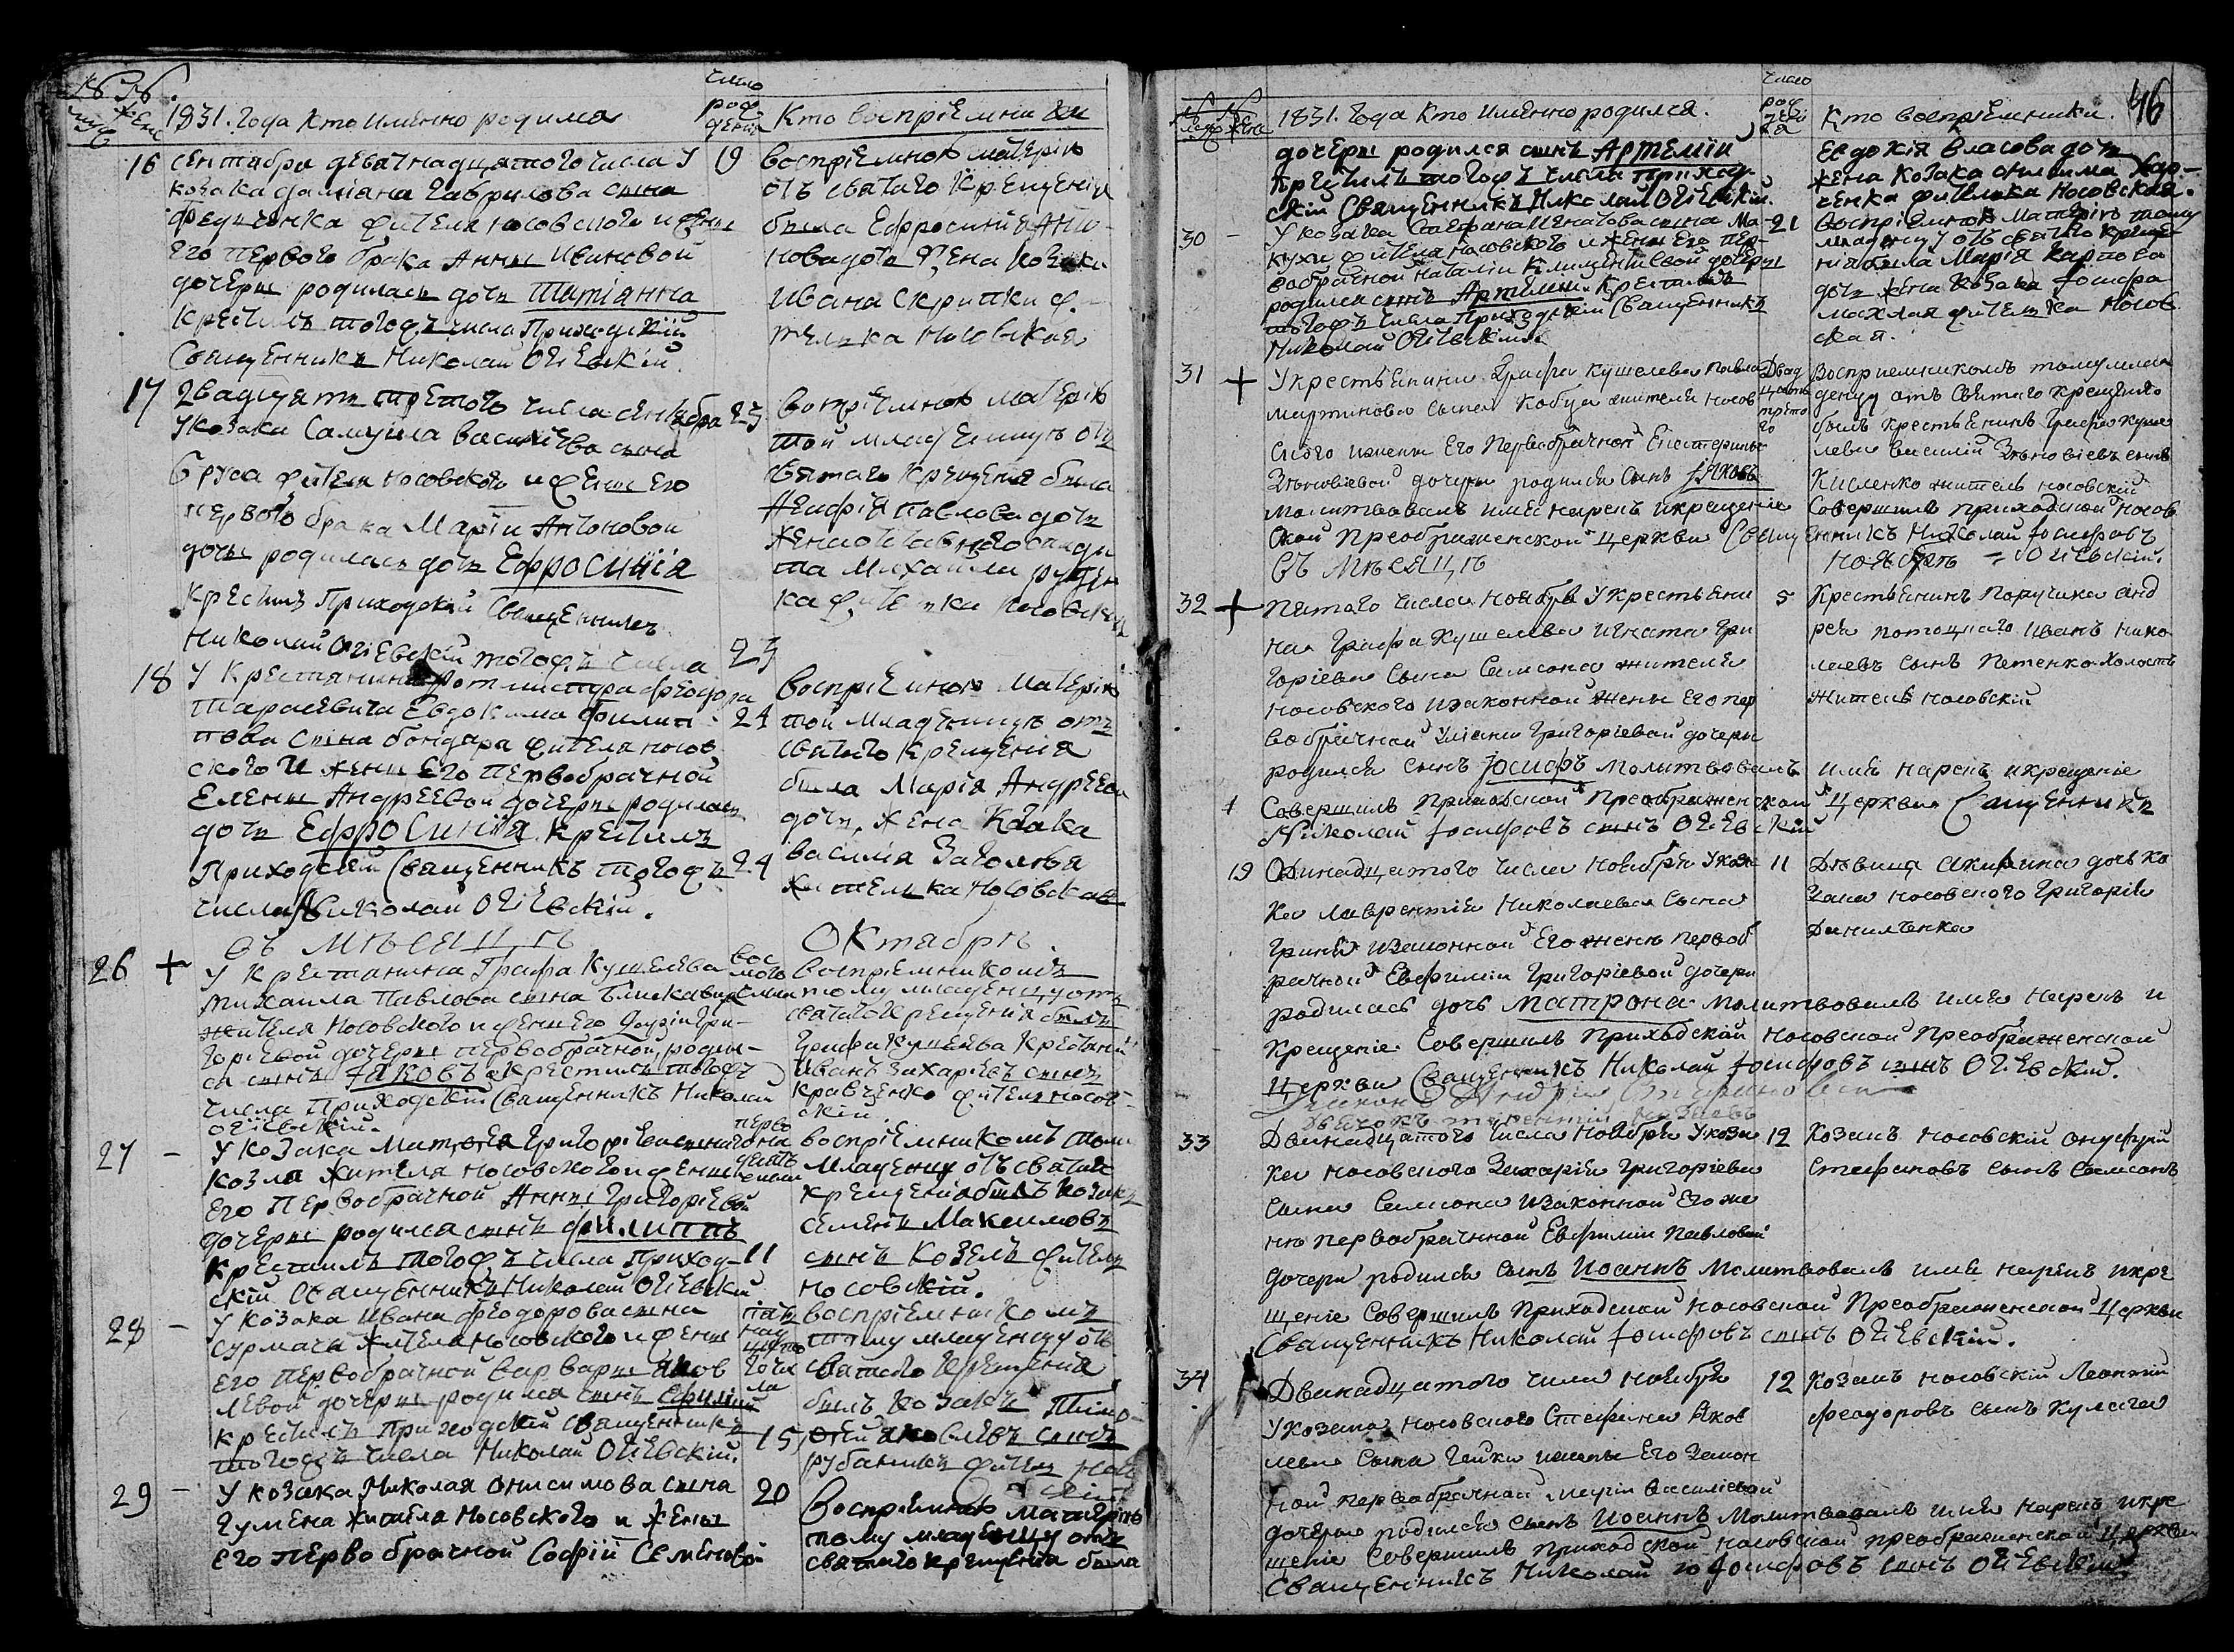 1831. Года Кто имЕнно родился
число рождЕнія
Кто воспріЕмники
16
сЕнтабря дЕвАтнадцятого числа У 19
козака даміана Гаврилова сына
жителя носовского и жЕны
Его пЕрвого брака Анны Ивановой
дочЕры родилась дочь Татіанна
крЕстилъ тогожъ числа Приходскій
СвящЕнникъ Николай ОгіЕвскій.
воспріЕмною матЕрію
отъ святаго КрЕщЕнія
была Ефросинія Анто-
нова дочь жЕна козака
Ивана Скрипки жи-
тЕлька Носовская
17
Двадцять трЕтого числа сЕнтабра 23
У козака Самуила ВасиліЕва сына
Бруса житЕля носовского и жЕны Его
пЕрвого брака Маріи Антоновой
дочы родилась дочь Ефросинія
КрЕстилъ Приходскій СвящЕнникъ
Николай ОгіЕвскій тогожъ числа 23
воспріЕмною матЕрію
той младЕницы отъ
святаго КрЕщЕнія была
Агафія павлова дочь
жЕна
Михаила
ка житЕлька Носовская
18
У КрЕстянина Ротмистра фЕодора
ТарасЕвича Евдокима филип- 24
пова сына бондара житЕля носов
ского И жЕны Его пЕрвобрачной
ЕлЕны АндрЕЕвой дочЕры родилась
дочь Ефросинія. КрЕстилъ
Приходскій СвящЕнникъ тогожъ 24
числа Николай ОгіЕвскій.
воспріЕмною МатЕрію
той младЕницы отъ
святаго крЕщЕнія
была Марія АндрЕЕва
дочь, жЕна Козака
василія
ЖитЕлька Носовская
Въ мѣсяцѣ Октабрѣ.
26 +
У КрЕстянина Графа КушЕлЕва
Михаила Павлова сына
житЕля Носовского и жЕны Его Дарїи Гри-
горіЕвой дочЕры пЕрвобрачной, родил-
ся сынъ Іаковъ КрЕстилъ тогожъ
числа Приходскій СвящЕнникъ Николай
ОгіЕвскій.
восмого числа
воспріЕмникомъ
тому младЕнцу отъ
святаго КрЕщЕнія былъ
Графа КушЕлЕва КрЕстянинъ
Иванъ ЗахаріЕвъ сынъ
КравчЕнко житЕль носов-
скій.
27 -
У козака МатфЕя ГригоріЕва сына
Козла житЕля носовского и жЕны
Его ПЕрвобрачной Анны ГригоріЕвой
дочЕры родился сынъ филиппъ
КрЕстилъ тогожъ числа Приход- 11
скій СвящЕнникъ Николай ОгіЕвскій
воспріЕмникомъ тому
младЕнцу отъ святаго
крЕщЕнія былъ козакъ
СЕмЕнъ Максимовъ
сынъ КозЕлъ житЕль
носовскій.
28 -
У козака Ивана фЕодорова сына
Сурмача житЕля носовского и жЕны
Его пЕрвобрачной варвары Яков
лЕвой дочЕры родился сынъ
КрЕстилъ Приходскій СвящЕнникъ 15
тогожъ числа Николай ОгіЕвскій.
пятнадцятого числа
воспріЕмникомъ
тому младЕнцу отъ
святаго КрЕщЕнія
былъ козакъ Тимо-
фЕй яковлЕвъ сынъ
житЕль
29 -
У козака Николая онисимова сына 20
ГумЕна житЕля Носовского и жЕны
Его пЕрвобрачной Софіи СЕмЕновой
ВоспріЕмною МатЕрію
тому младЕнцу отъ
святаго крЕщЕнія была
46
1831. Года Кто ИмЕнно родился.
число рождЕнія
Кто воспріЕмники.
дочЕры родился сынъ АртЕмій
КрЕстилъ тогожъ числа Приход-
скій СвящЕнникъ Николай ОгіЕвскій.
Евдокія власова дочь
жЕна козака онисима Хар-
чЕнка житЕлька Носовская.
30 -
У козака СтЕфана Игнатова сына Ма- 21
кухи житЕля Носовского и жЕны Его пЕр-
вобрачной Наталіи КлимЕнтіЕвой дочЕры
родился сынъ АртЕмій. КрЕстилъ
тогожъ числа Приходскій СвящЕнникъ
Николай ОгіЕвскій.
ВоспріЕмною МатЕрію тому
младЕнцу отъ святаго КрЕщЕ
нія была Марія Карпова
дочь жЕна козака Іосифа
житЕлька Носов
ская.
31 +
У крестьянина Графа Кушелева Павла
Мартинова сына Кобца жителя носов
ского и жены Его Первобрачной Екатерины
Зѣновіевой дочери родился сынъ Іяковъ
молитвовалъ имя нарекъ и крещеніе
Двадцать третого
Восприемникомъ тому младе
денцу отъ Святаго Крещенія
былъ крестьянинъ Графа Куше
лева Василій Зѣновіевъ сынъ
Кисленко житель носовскій
Совершилъ приходской носов
ской Преображенской церкви Священникъ Николай Іосифовъ
ОгіЕвскій.
Въ Мѣсяцѣ Ноябрѣ
32 +
Пятого числа Ноября У крестьяни 5
на Графа Кушелева Игната Гри
горіева сына Самсона жителя
носовского и законной жены его пер
вобрачной Уліаны Григоріевой дочери
родился сынъ Іосифъ молитвовалъ имя нарекъ и крещеніе
Совершилъ приходской Преображенской Церкви Священникъ
Николай Іосифовъ сынъ ОгіЕвскій
Крестьянинъ Поручика Анд
рея Потоцкаго Иванъ Нико
лаевъ сынъ Петенко холостъ
житель носовскій
19
Одинадцятого числа Ноября У коза 11
ка Лаврентія Николаева сына
Гриня и законной Его жены первоб
рачной Евфиміи Григоріевой дочери
родилась дочь Матрона молитвовалъ имя нарекъ и
крещеніе Совершилъ Приходской носовской Преображенской
Церкви Священникъ Николай Іосифовъ сынъ ОгіЕвскій.
Дѣвица Акилина дочь ко
зака носовского Григорія
Данилѣнка
33
Двинадцятого числа Ноября У коза 12
ка носовского Захарія Григоріева
сына Самсона и законной Его же
ны первобрачной Евфиміи Павловой
дочери родился сынъ Иоаннъ молитвовалъ имя нарекъ и кре
щеніе Совершилъ Приходской носовской Преображенской Церкви
СвящЕнникъ Николай Іосифовъ сынъ ОгіЕвскій.
Козакъ носовскій Онуфрій
Стефановъ сынъ Самсонъ
34
Двинадцятого числа Ноября 12
У козака носовского Стефана Яков
лева сына Гейка и жены Его закон
ной первобрачной Маріи Василіевой
дочери родился сынъ Иоаннъ молитвовалъ имя нарекъ и кре
щеніе Совершилъ приходской носовской преображенской Церкви
СвящЕнникъ Николай Іосифовъ сынъ ОгіЕвскій.
Козакъ носовскій Леонтій
Феодоровъ сынъ Кулага